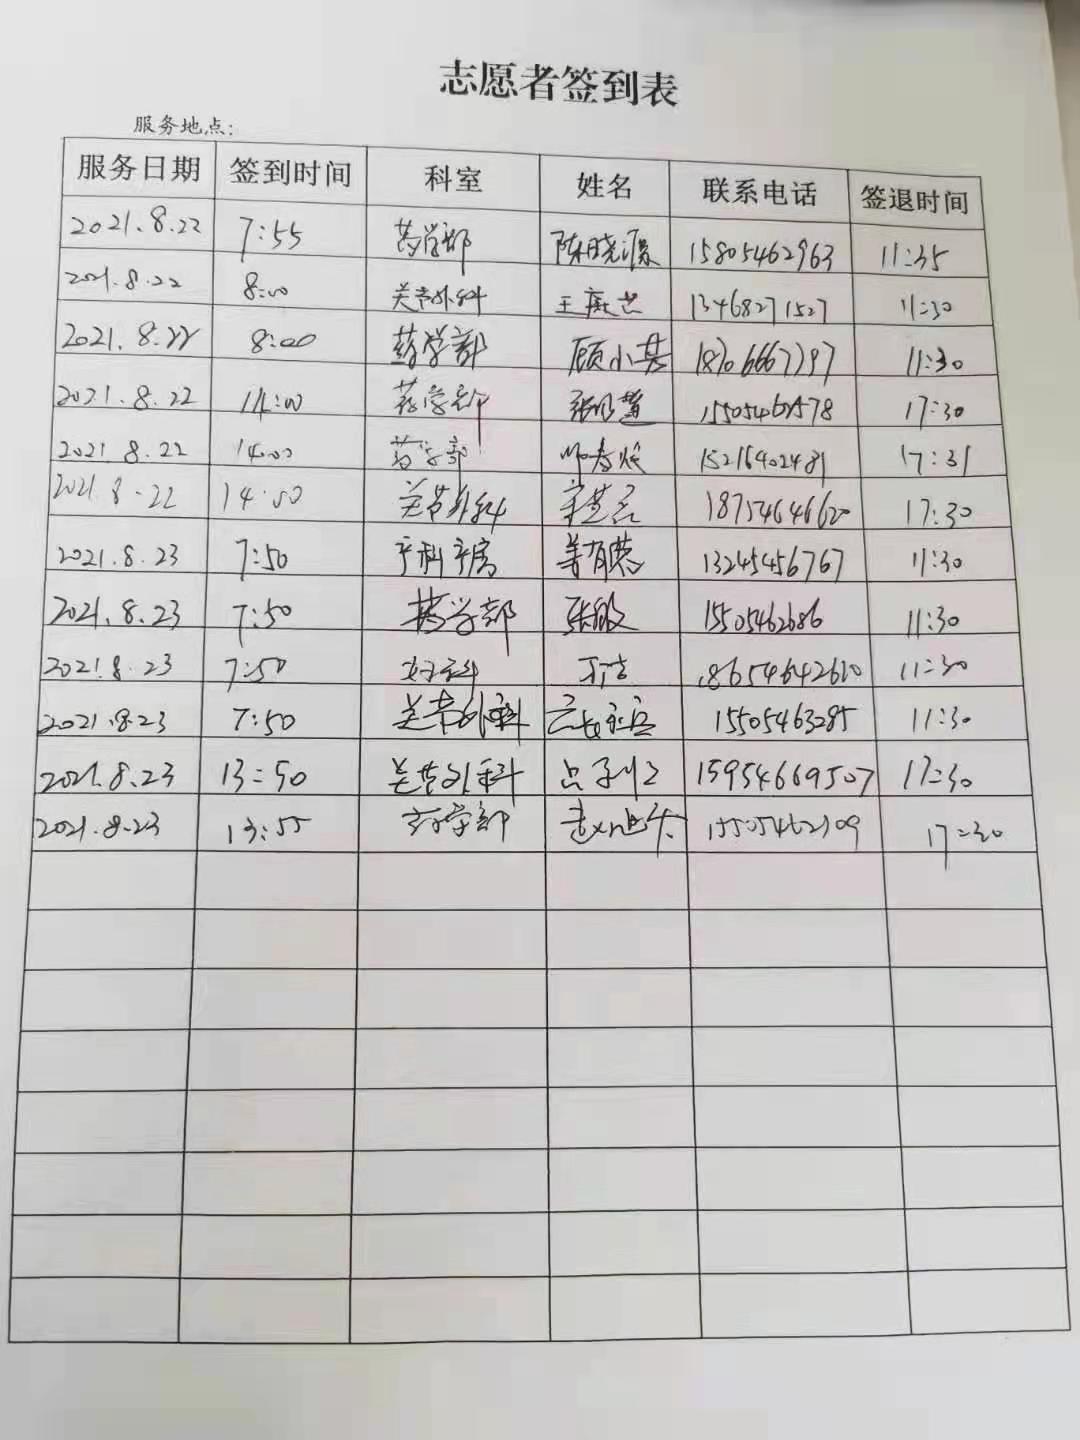 志愿者签到表
服务地点:
服务日期 签到时间 科室 姓名 联系电话 签退时间
2021.8.22 7:55 药学部 陈晓 15805462963 11:35
2021.8.22 8:00 关节外科 王 13468271527 11:30
2021.8.22 8:00 药学部 顾小 18706667797 11:30
2021.8.22 14:00 药学部 张 17:30
2021.8.22 14:00 药学部 15216402481 17:31
2021.8.22 14:00 关节外科 18754646620 17:30
2021.8.23 7:50 产科产房 姜有 13245456767 11:30
2021.8.23 7:50 药学部 张敏 15505462686 11:30
2021.8.23 7:50 妇科 18654642610 11:30
2021.8.23 7:50 关节外科 15505463285 11:30
2021.8.23 13:50 关节外科 15954669507 17:30
2021.8.23 13:55 药学部 赵 15505462309 17:30